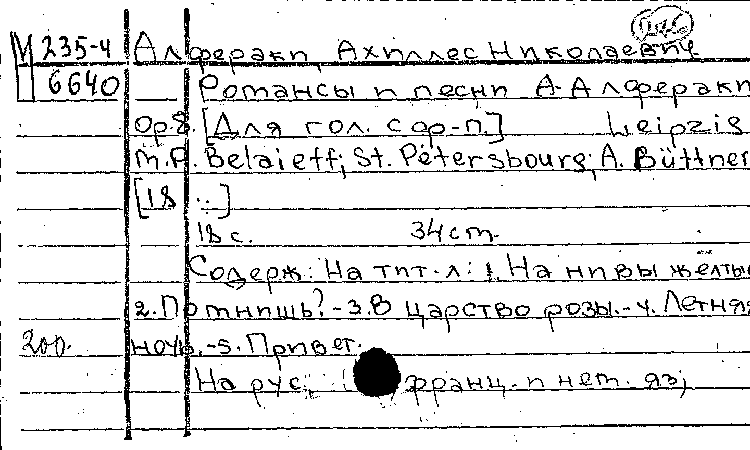 М 235-4 Алфераки, Ахиллес Николаевич
6640 Романсы и песни А. Алфераки
Op. 8. [Для гол. с ф-п.] Leipzig
M. P. Belaieff; St. Pétersbourg; A. Büttner
[18 ..]
18 с. 34 cm.
Содерж: На тит. л: 1. На нивы жёлтые
2. Помнишь? - 3. В царство розы. - 4. Летняя
200. ночь. - 5. Привет.
На рус., франц. и нем. яз;